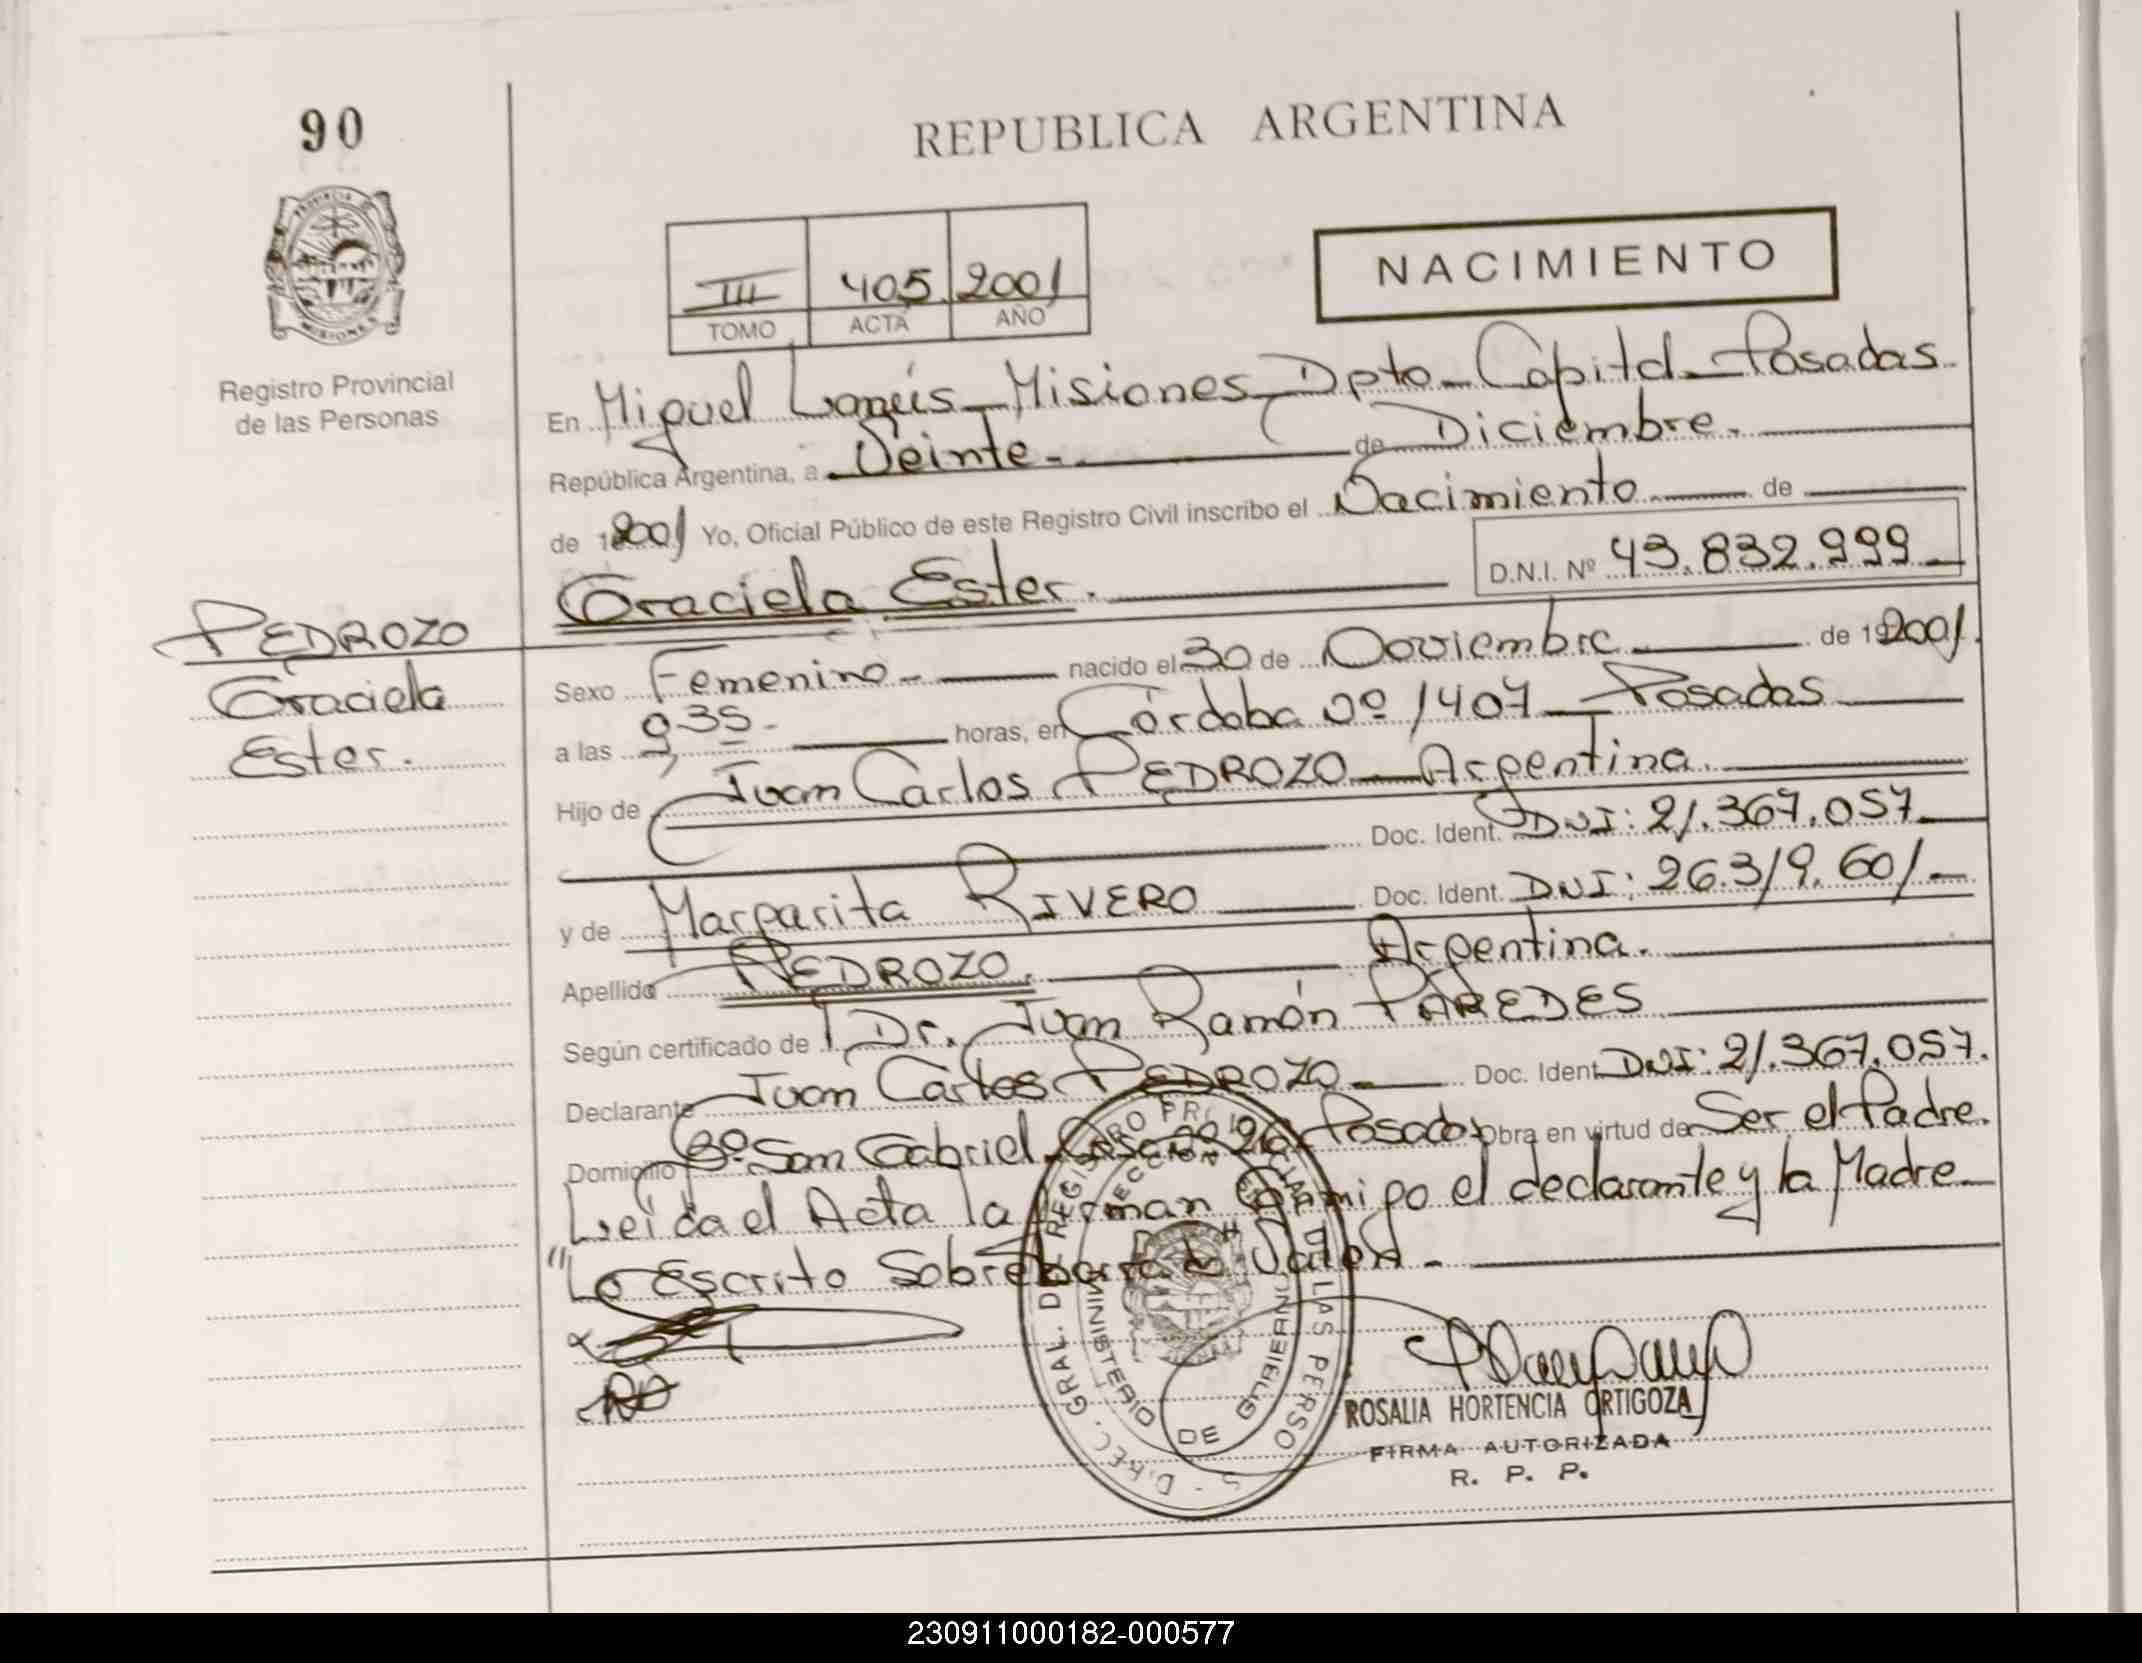 90
REPUBLICA ARGENTINA
PROVINCIA DE MISIONES
Registro Provincial
de las Personas
III 405 2001
TOMO ACTA AÑO
NACIMIENTO
En Miguel Lanús - Misiones - Dpto - Capital - Posadas.
República Argentina, a Veinte - de Diciembre.
de 2001 Yo, Oficial Público de este Registro Civil inscribo el Nacimiento de
D.N.I. Nº 43.832.999
Graciela Ester.
PEDROZO
Graciela
Ester.
Sexo Femenino - nacido el 30 de Noviembre de 19 2001.
a las 9,35 - horas, en Córdoba nº 1407 - Posadas
Hijo de Juan Carlos PEDROZO - Argentina.
Doc. Ident. DNI: 21.367.057
y de Margarita RIVERO Doc. Ident. DNI: 26.319.601 -
Apellido PEDROZO. Argentina.
Según certificado de Dr. Juan Ramón PAREDES
Declarante Juan Carlos PEDROZO Doc. Ident. DNI: 21.367.057.
Domicilio Bº San Gabriel Casa nº 26 Posadas Obra en virtud de Ser el Padre.
Leída el Acta la firman Conmigo el declarante y la Madre
"Lo Escrito Sobreborrado" Valen. -
DIREC. GRAL. DEL REGISTRO PROVINCIAL DE LAS PERSONAS
MINISTERIO DE GOBIERNO
ROSALIA HORTENCIA ORTIGOZA
FIRMA AUTORIZADA
R. P. P.
230911000182-000577